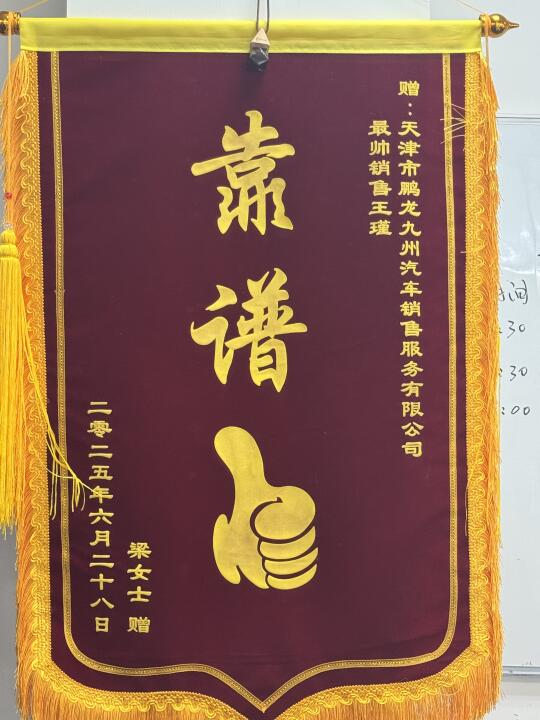 赠：天津市鹏龙九州汽车销售服务有限公司
最帅销售王瑾
靠谱
梁女士 赠
二零二五年六月二十八日
间
:30
:30
:00